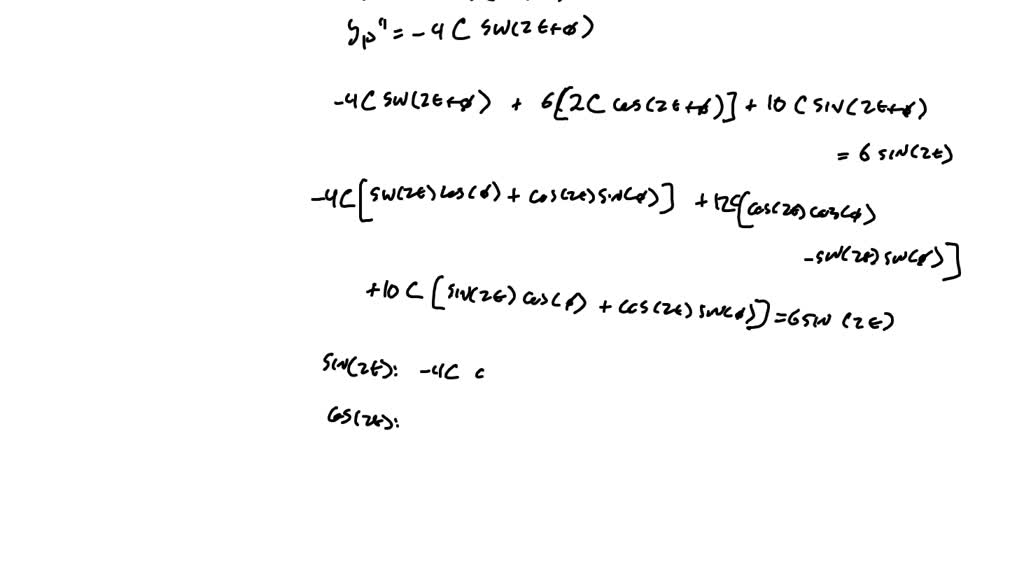 yp" = -4C sin(2t+φ)
-4C sin(2t+φ) + 6[2C cos(2t+φ)] + 10 C sin(2t+φ)
= 6 sin(2t)
-4C[sin(2t)cos(φ) + cos(2t)sin(φ)] + 12C[cos(2t)cos(φ)
-sin(2t)sin(φ)]
+10 C [sin(2t)cos(φ) + cos(2t)sin(φ)] = 6 sin(2t)
sin(2t): -4C c
cos(2t):